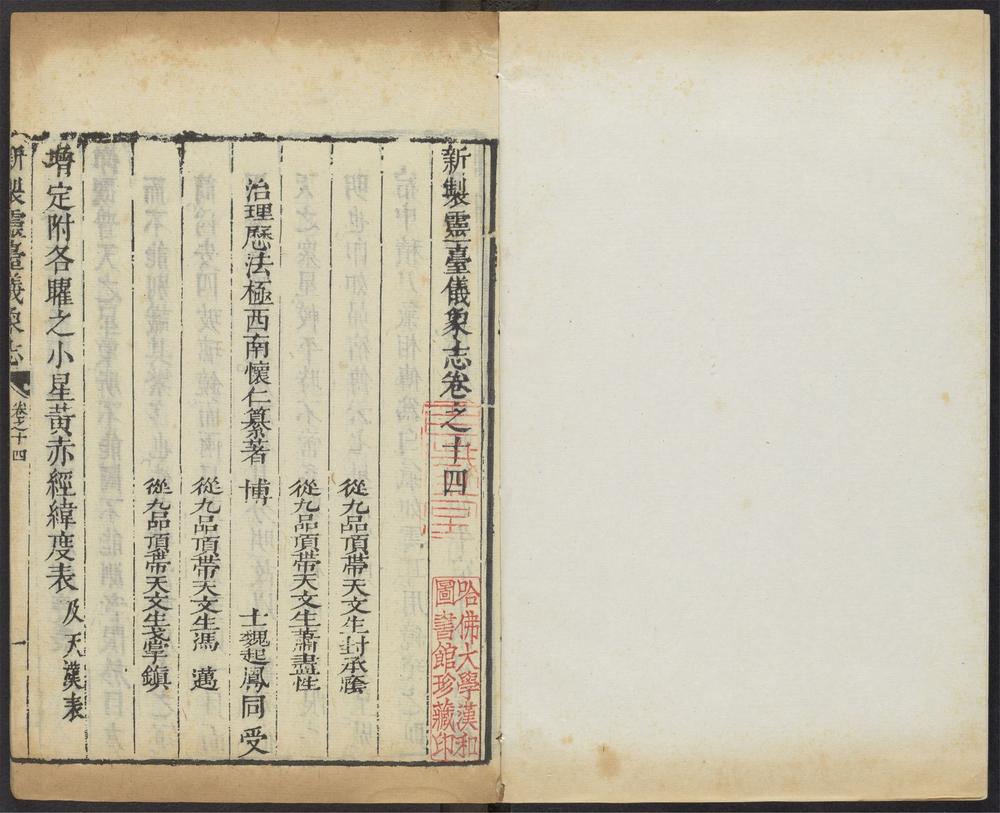 新製靈臺儀象志卷之十四
從九品頂帶天文生封承蔭
從九品頂帶天文生蕭盡性
治理歷法極西南懷仁纂著 博 士魏起鳳同受
從九品頂帶天文生馮 邁
從九品頂帶天文生戈掌鎮
增定附各曜之小星黃赤經緯度表 及天漢表
新製靈臺儀象志 卷之十四 一
哈佛大學漢和
圖書館珍藏印